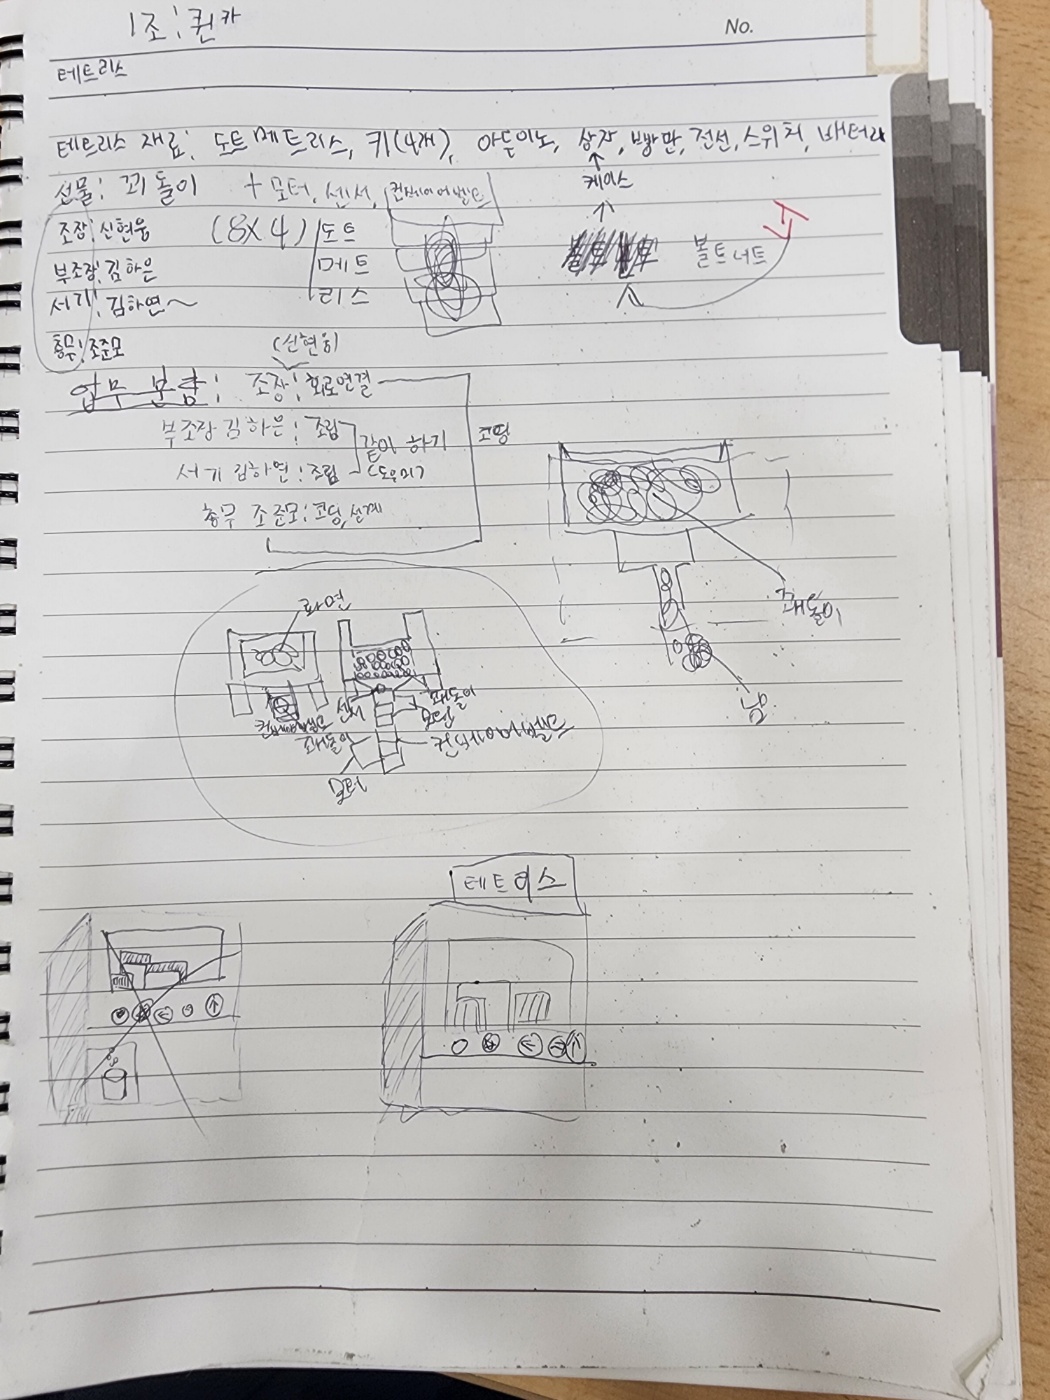 1조: 퀸카
No.
테트리스
테트리스 재료: 도트메트리스, 키(4개), 아두이노, 상자, 빵판, 전선, 스위치, 배터리
케이스
선물: 꾀돌이 + 모터, 센서, 컨베이어벨트
조장: 신현웅 (8X4) 도트
볼트너트
부조장: 김하은 메트
서기: 김하연~ 리스
총무: 조준모
업무 분담: 조장: 회로연결
부조장 김하은: 조립 같이 하기 코딩
서기 김하연: 조립 (도우미)
총무 조준모: 코딩, 설계
화면
꾀돌이
센서 꾀돌이
모터
꾀돌이 컨베이어벨트
모터
테트리스